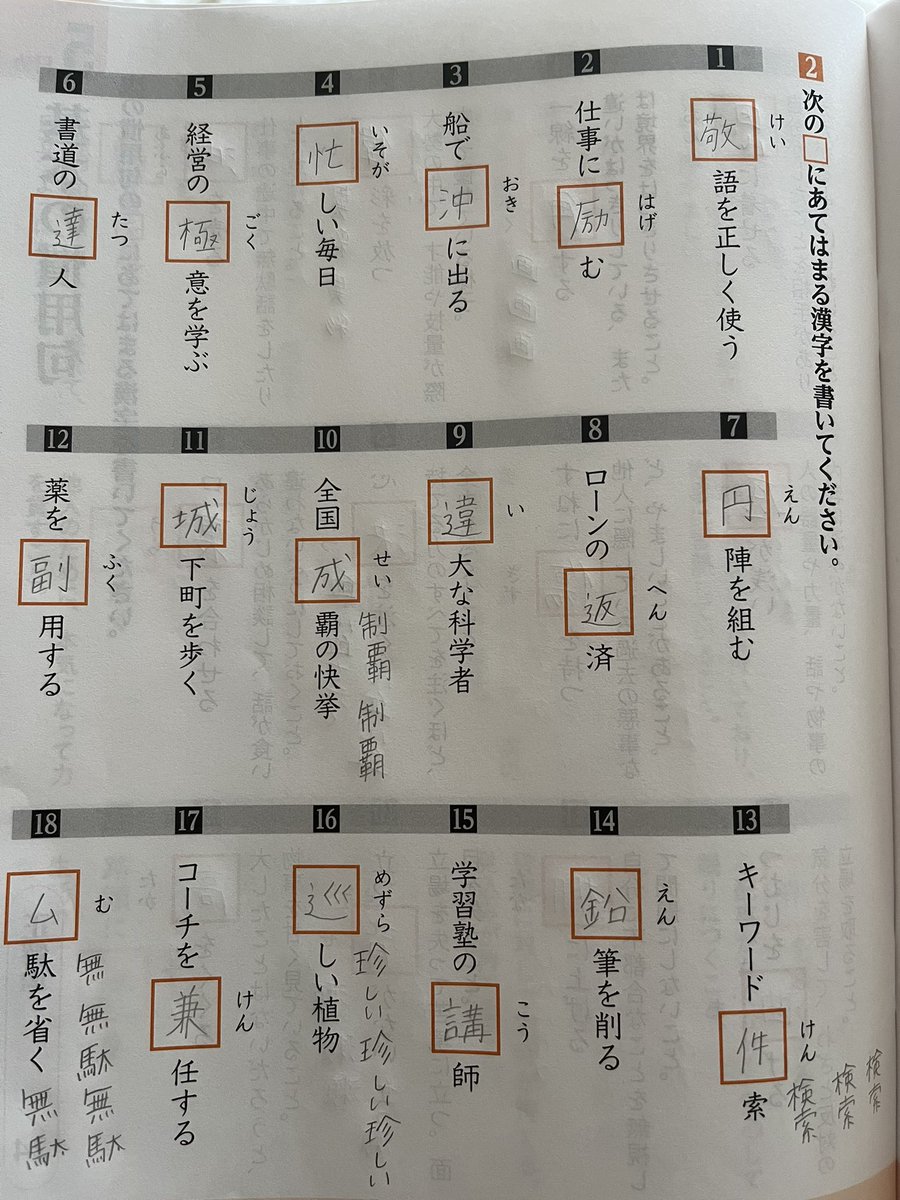 2 次の□にあてはまる漢字を書いてください。
1 敬語を正しく使う
けい
2 仕事に励む
はげ
3 船で沖に出る
おき
4 忙しい毎日
いそが
5 経営の極意を学ぶ
ごく
6 書道の達人
たつ
7 円陣を組む
えん
8 ローンの返済
へん
9 違大な科学者
い
10 全国成覇の快挙
せい
制覇 制覇
11 城下町を歩く
じょう
12 薬を副用する
ふく
13 キーワード件索
けん
検索
検索
検索
14 鉛筆を削る
えん
15 学習塾の講師
こう
16 巡しい植物
めずら
珍しい珍しい珍しい
17 コーチを兼任する
けん
18 ム駄を省く
む
無無駄無駄
無駄